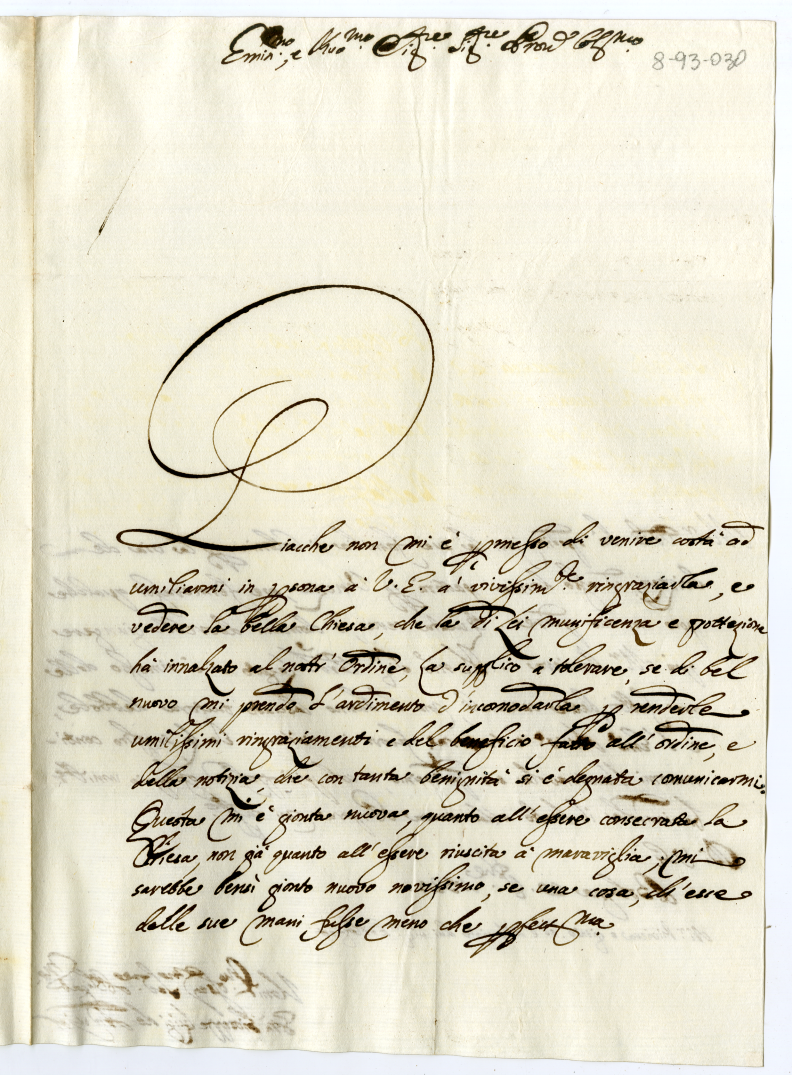 Emin.mo, e Rev.mo Sig.re Sig.re Pron. Col.mo
8-93-030
Giacche non mi è permesso di venire costà ad
umiliarmi in persona à V. E. a' vivissim.te ringraziarla, e
vedere la bella Chiesa, che la di Lei munificenza e protezione
hà innalzato al nostr' Ordine, La supplico à tolerare, se di bel
nuovo mi prendo l'ardimento d'incomodarla per renderle
umilissimi ringraziamenti e del beneficio fatto all'ordine, e
della notizia, che con tanta benignità si è degnata comunicarmi.
Questa mi è gionta nuova, quanto all'essere consecrata la
Chiesa, non già quanto all'essere riuscita à maraviglia; mi
sarebbe bensì gionto nuovo novissimo, se una cosa, ch'esce
delle sue mani fusse meno che perfect.ma